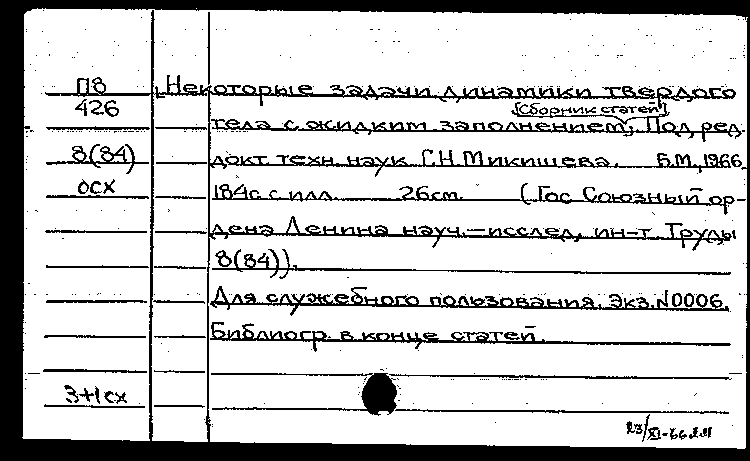 П8
426
8(84)
осх
Некоторые задачи динамики твердого
[Сборник статей].
тела с жидким заполнением, Под ред.
докт. техн. наук Г.Н. Микишева. Б.М., 1966.
184с. с илл. 26см. (Гос Союзный ор-
дена Ленина науч.-исслед. ин-т. Труды
8(84)).
Для служебного пользования. Экз.N0006.
Библиогр. в конце статей.
3+1сх
23/XI-66